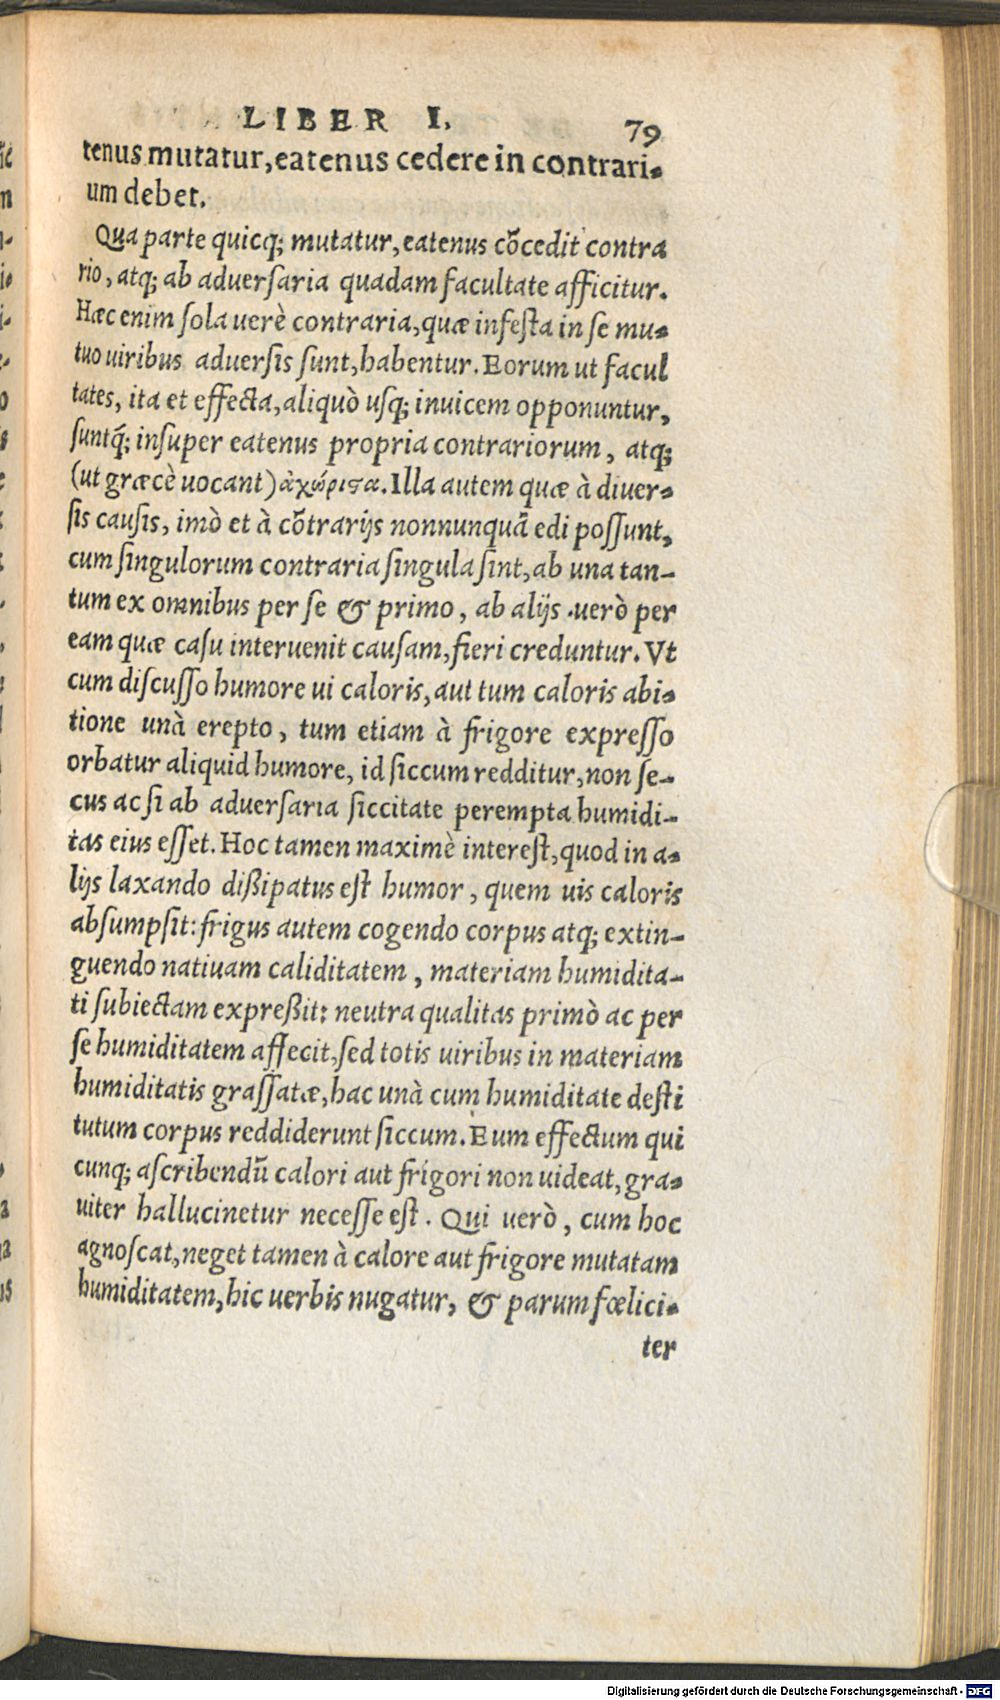 LIBER I. 79
tenus mutatur, eatenus cedere in contrari-
um debet.
Qua parte quicq; mutatur, eatenus cõcedit contra
rio, atq; ab aduerſaria quadam facultate afficitur.
Hæc enim ſola uerè contraria, quæ infeſta in ſe mu-
tuo uiribus aduerſis ſunt, habentur. Eorum ut facul
tates, ita et effecta, aliquò uſq; inuicem opponuntur,
ſuntq́; inſuper eatenus propria contrariorum, atq;
(ut græcè uocant) ἀχώριστα. Illa autem quæ à diuer-
ſis cauſis, imò et à cõtrarijs nonnunquã edi poſſunt,
cum ſingulorum contraria ſingula ſint, ab una tan-
tum ex omnibus per ſe & primo, ab alijs uerò per
eam quæ caſu interuenit cauſam, fieri creduntur. Vt
cum diſcuſſo humore ui caloris, aut tum caloris abi-
tione unà erepto, tum etiam à frigore expreſſo
orbatur aliquid humore, id ſiccum redditur, non ſe-
cus ac ſi ab aduerſaria ſiccitate perempta humidi-
tas eius eſſet. Hoc tamen maximè intereſt, quod in a-
lijs laxando dißipatus eſt humor, quem uis caloris
abſumpſit: frigus autem cogendo corpus atq; extin-
guendo natiuam caliditatem, materiam humidita-
ti ſubiectam expreßit: neutra qualitas primò ac per
ſe humiditatem affecit, ſed totis uiribus in materiam
humiditatis graſſatæ, hac unà cum humiditate deſti
tutum corpus reddiderunt ſiccum. Eum effectum qui
cunq; aſcribendũ calori aut frigori non uideat, gra-
uiter hallucinetur neceſſe eſt. Qui uerò, cum hoc
agnoſcat, neget tamen à calore aut frigore mutatam
humiditatem, hic uerbis nugatur, & parum fœlici-
ter
Digitalisierung gefördert durch die Deutsche Forschungsgemeinschaft - DFG